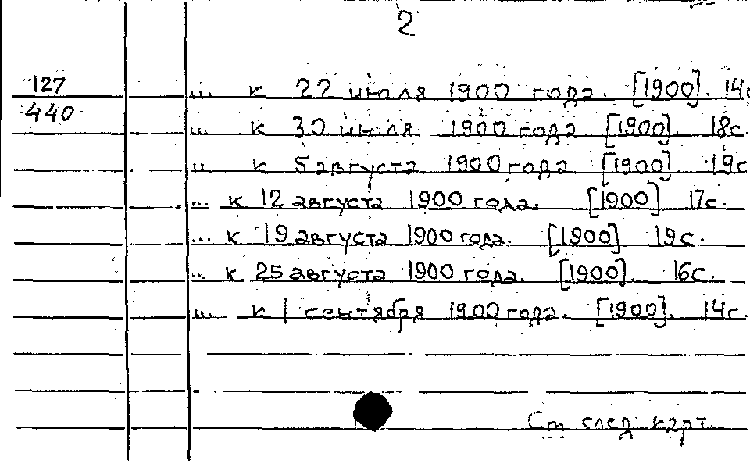 2
127
440
... к 22 июля 1900 года. [1900]. 14с
... к 30 июля 1900 года [1900]. 18с.
... к 5 августа 1900 года [1900]. 19с
... к 12 августа 1900 года. [1900] 17с.
... к 19 августа 1900 года. [1900] 19с.
... к 25 августа 1900 года. [1900]. 16с.
... к 1 сентября 1900 года. [1900]. 14с.
См след карт